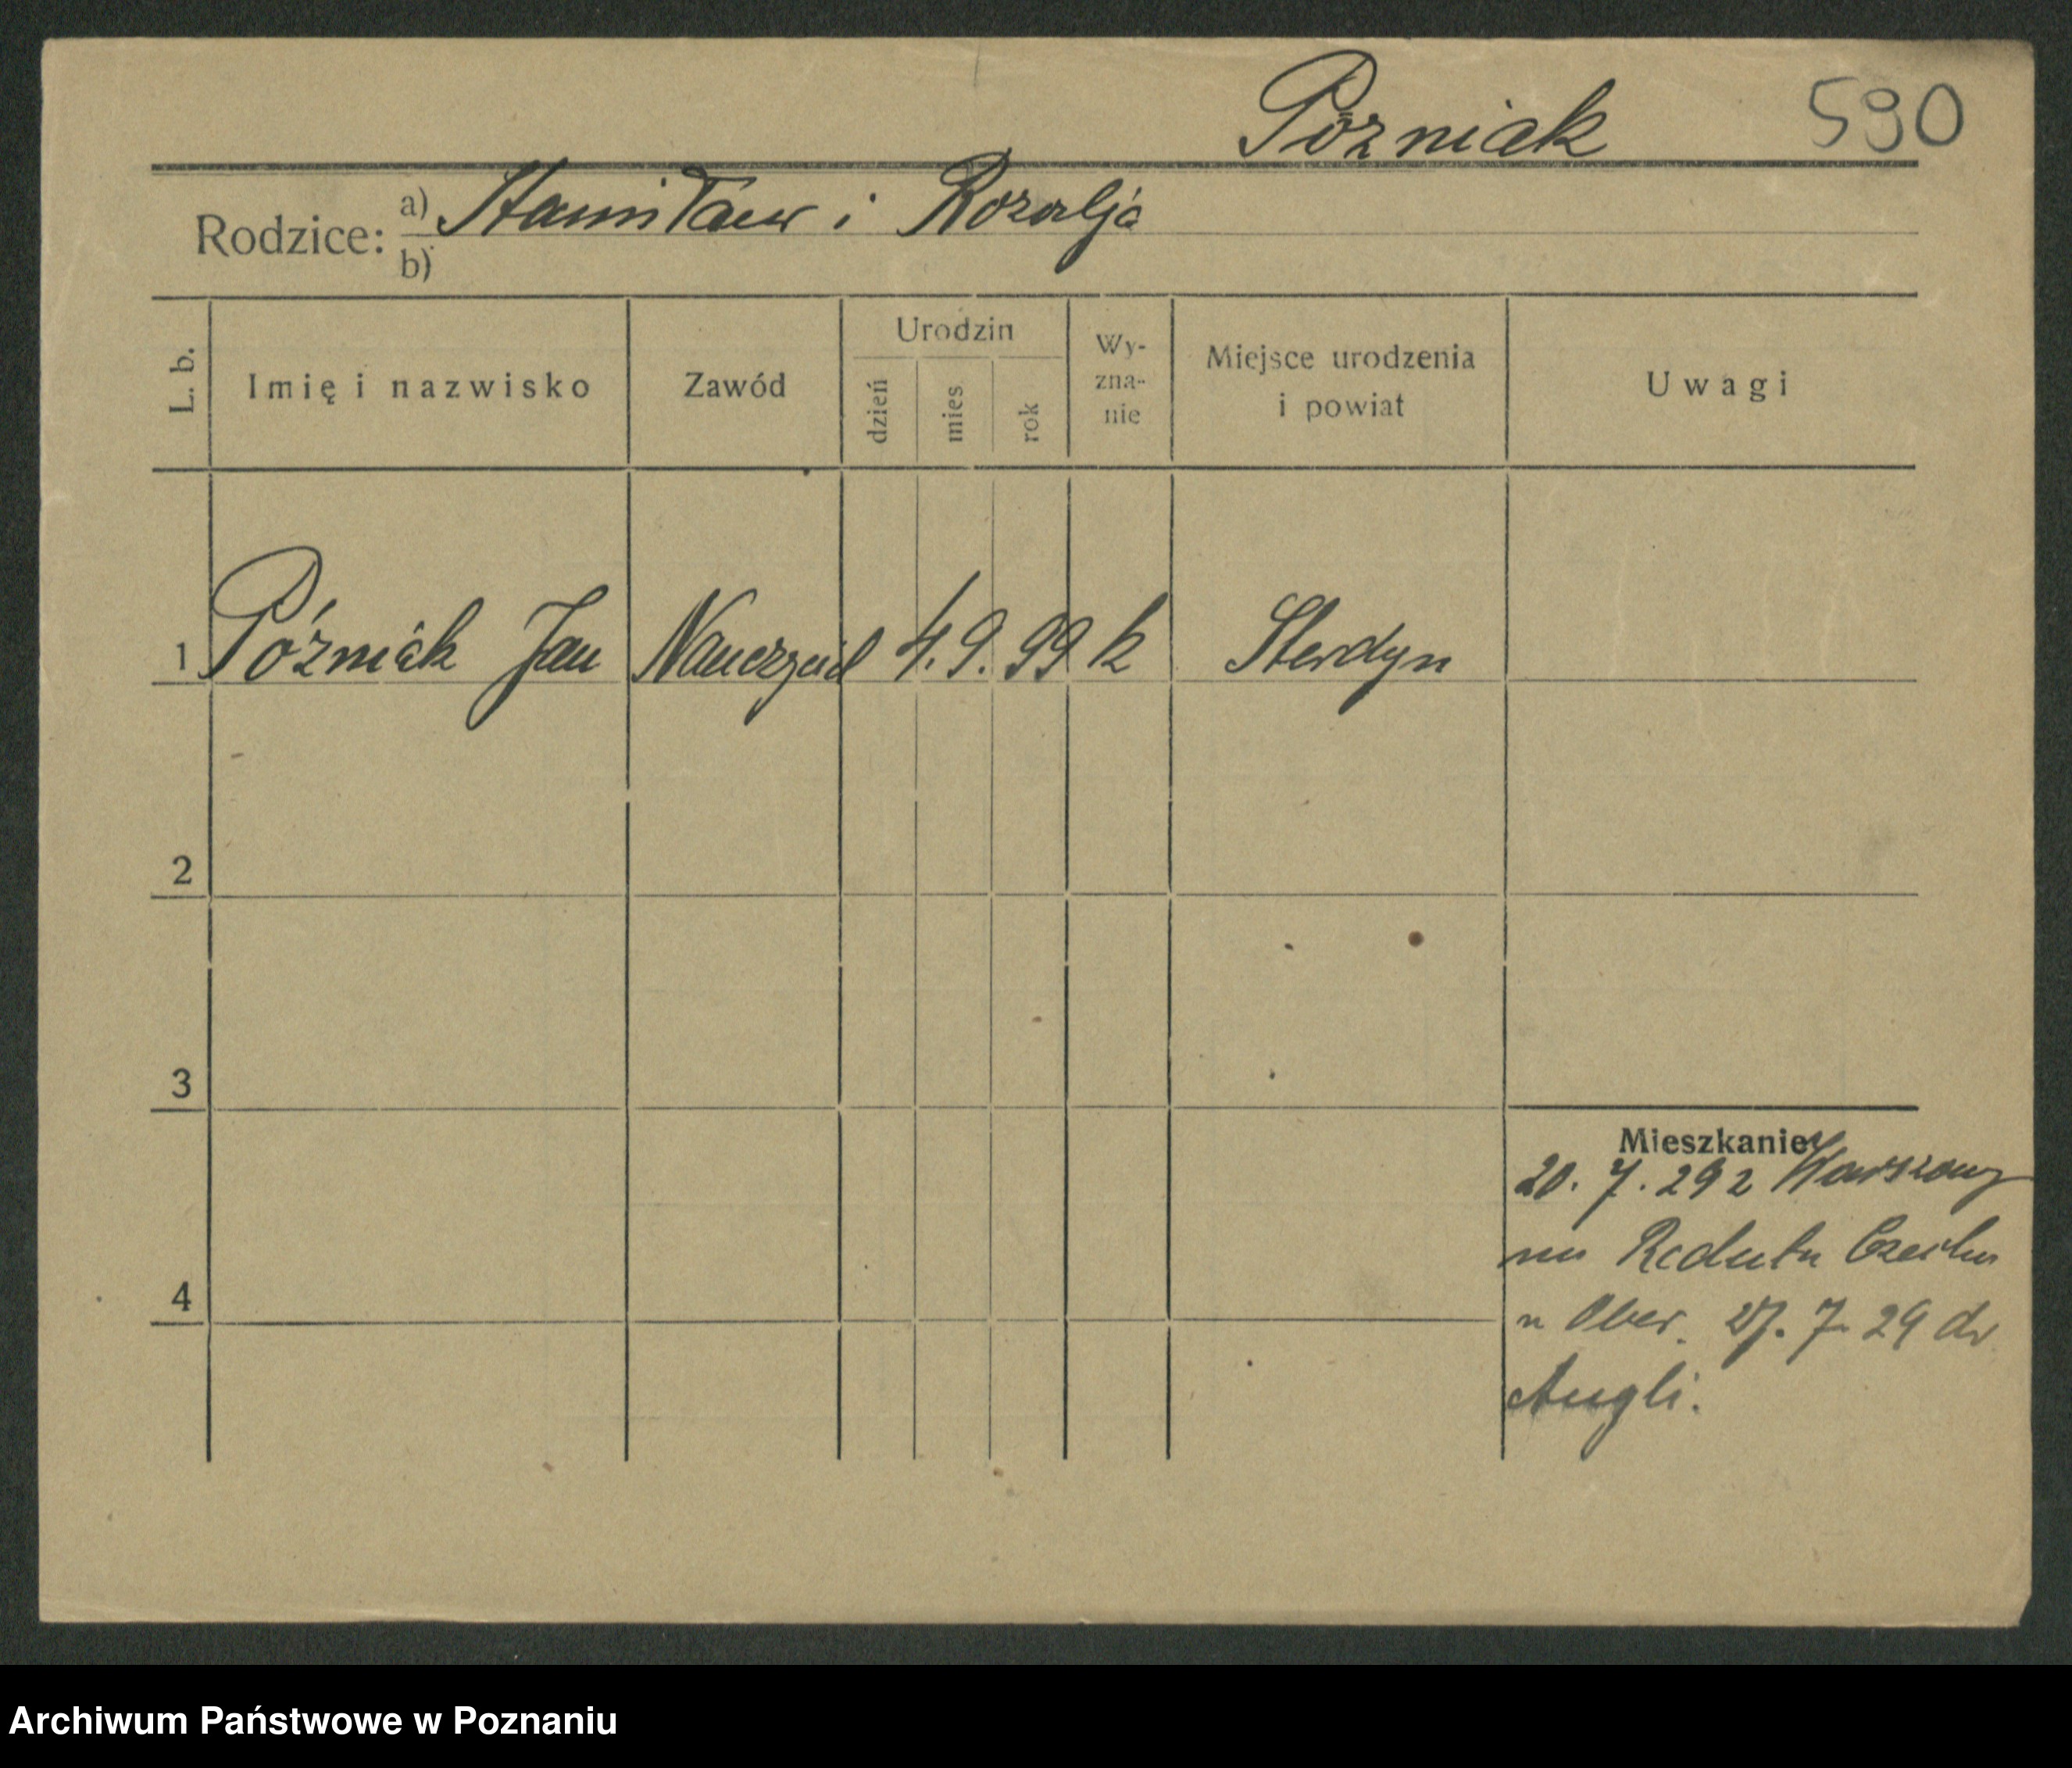 Poźniak 590
Rodzice: a) Stanisław i Rozalja
b)
L. b. Imię i nazwisko Zawód Urodzin dzień mies rok Wy-zna-nie Miejsce urodzenia i powiat Uwagi
1 Poźniak Jan Nauczyciel 4. 9. 99 k Sterdyn
2
3
4
Mieszkanie
20. 7. 29 z Warszawy
na Reduta
27. 7. 29 do
Angli.
Archiwum Państwowe w Poznaniu